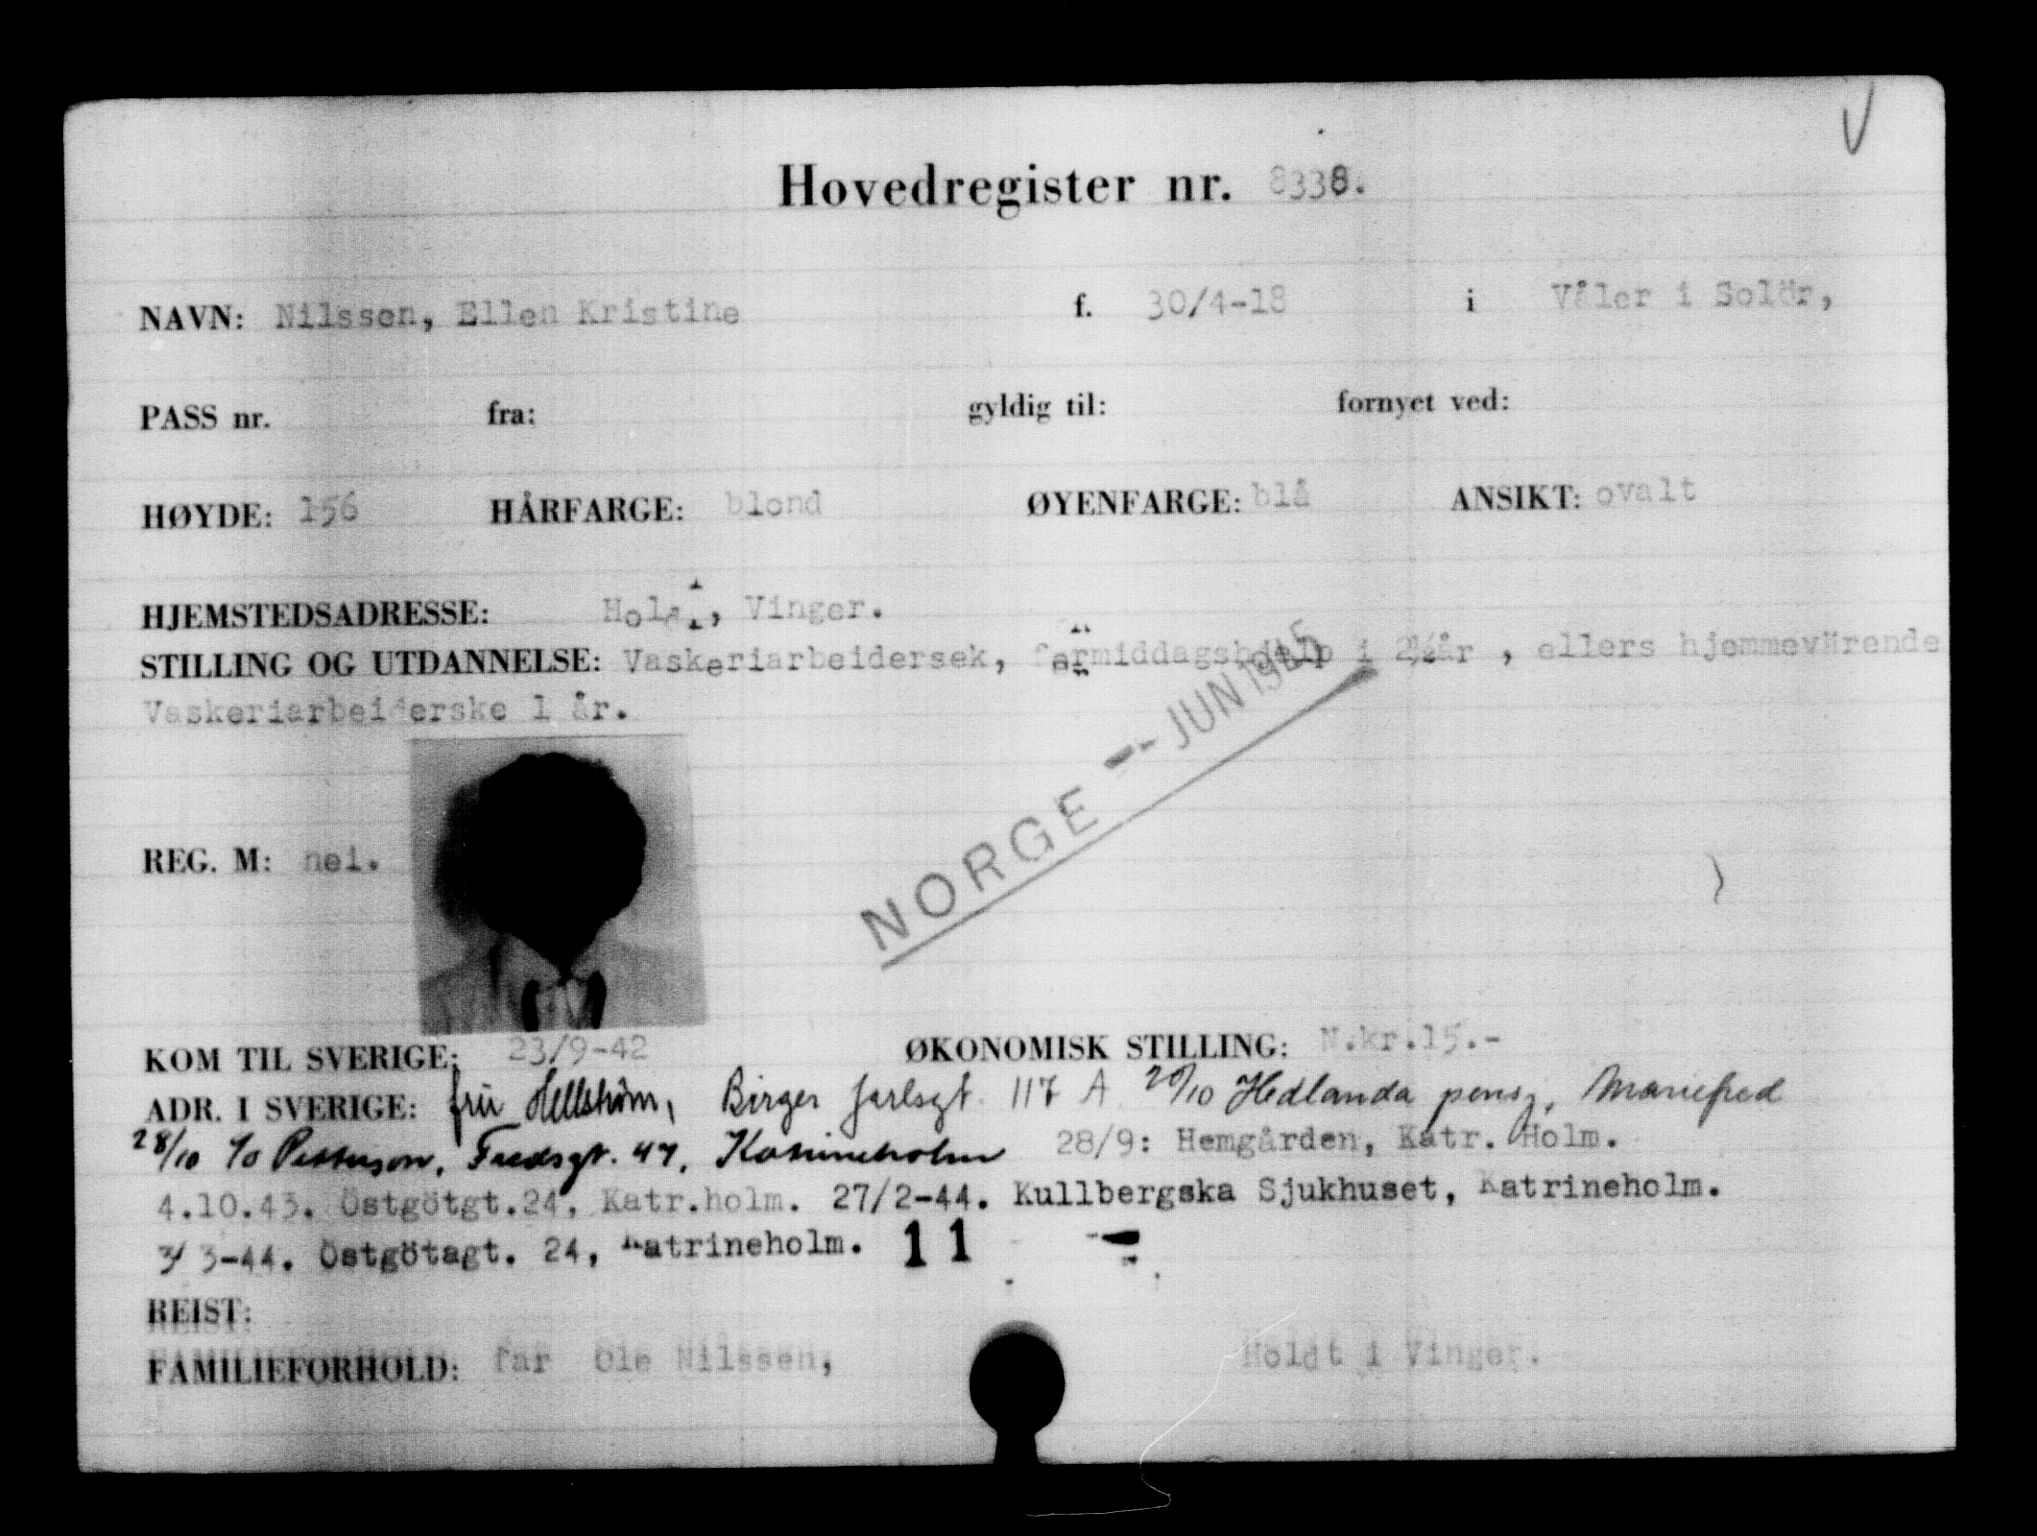 Hovedregister nr. 8338.
NAVN: Nilssen, Ellen Kristine f. 30/4-18 i Våler i Solör,
PASS nr. fra: gyldig til: fornyet ved:
HØYDE: 156 HÅRFARGE: blond ØYENFARGE: blå ANSIKT: ovalt
HJEMSTEDSADRESSE: Vinger.
STILLING OG UTDANNELSE: Vaskeriarbeidersek, formiddagshjelp i 2½ år , ellers hjemmevärende
Vaskeriarbeiderske 1 år.
NORGE - JUN 1945
REG. M: nei.
KOM TIL SVERIGE: 23/9-42 ØKONOMISK STILLING: N.kr.15.-
ADR. I SVERIGE: fru Hellström, Birger Jarlsgt 117 A 20/10 Hedlanda pens, Mariefred
28/10 c/o Petterson, Fredsgt. 47, Katrineholm 28/9: Hemgården, Katr. Holm.
4.10.43. Östgötgt.24, Katr.holm. 27/2-44. Kullbergska Sjukhuset, Katrineholm.
3/3-44. Östgötagt. 24, Katrineholm. 11
REIST:
FAMILIEFORHOLD: far Ole Nilssen, Holdt i Vinger.